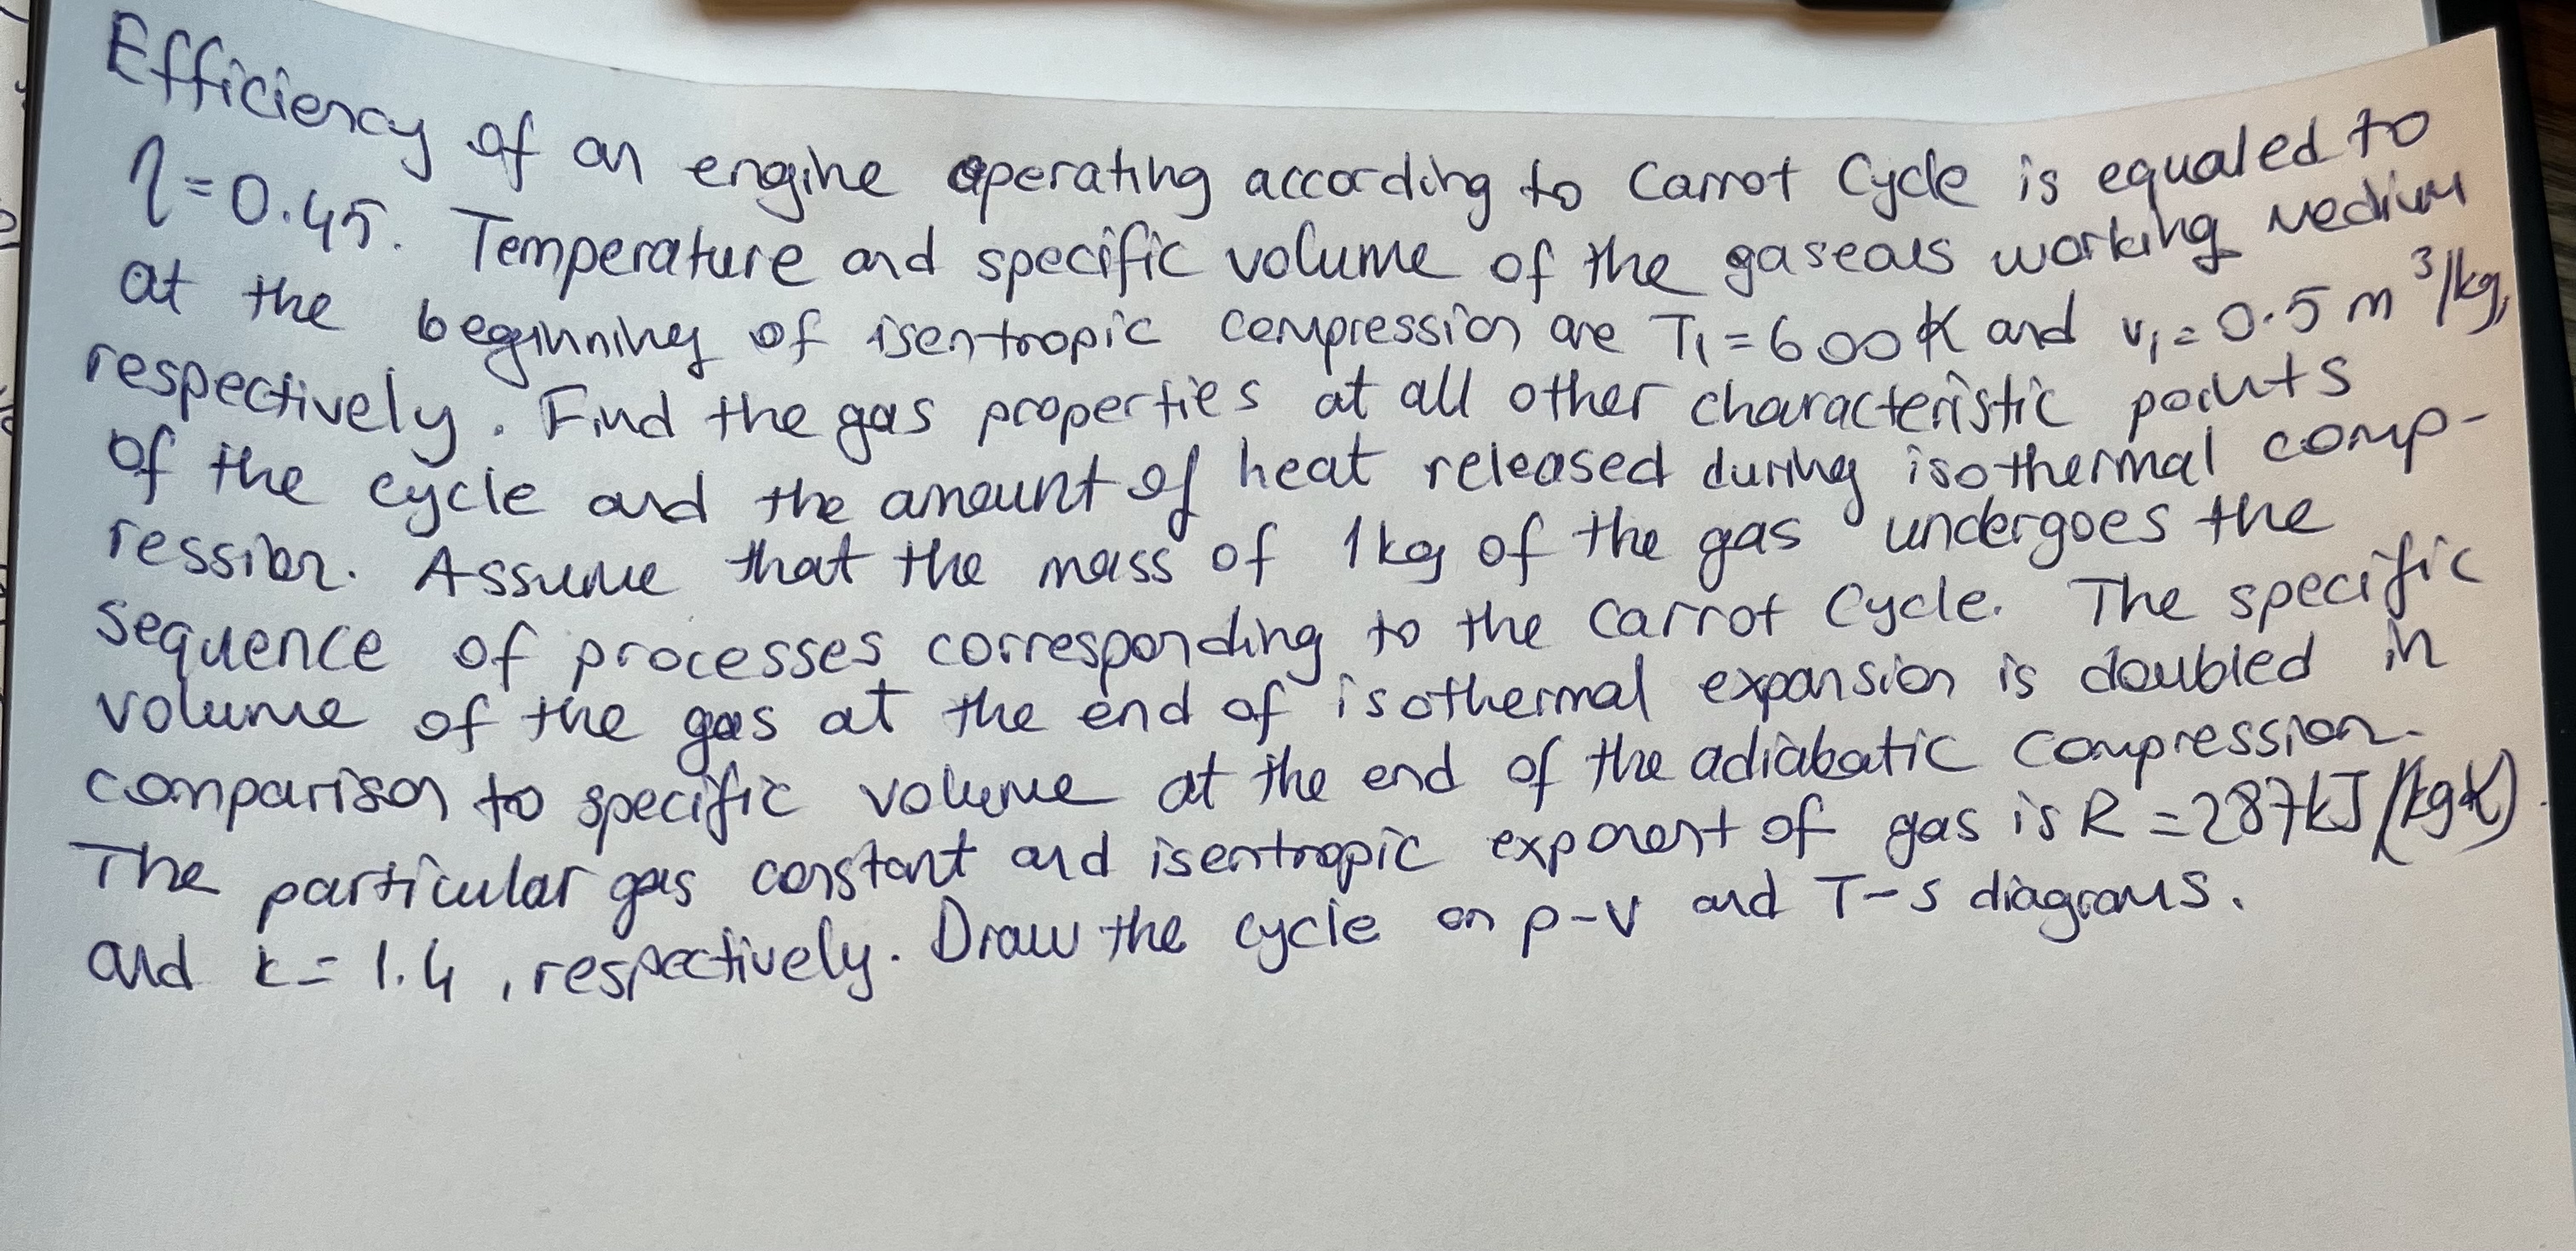 Efficiency of an engine operating according to Carnot Cycle is equaled to
η=0.45. Temperature and specific volume of the gaseous working medium
at the beginning of isentropic compression are T₁=600K and v₁=0.5 m³/kg,
respectively. Find the gas properties at all other characteristic points
of the cycle and the amount of heat released during isothermal comp-
ression. Assume that the mass of 1kg of the gas undergoes the
sequence of processes corresponding to the Carnot Cycle. The specific
volume of the gas at the end of isothermal expansion is doubled in
comparison to specific volume at the end of the adiabatic compression.
The particular gas constant and isentropic exponent of gas is R=287kJ/(kgK)
and k=1.4, respectively. Draw the cycle on p-v and T-s diagrams.